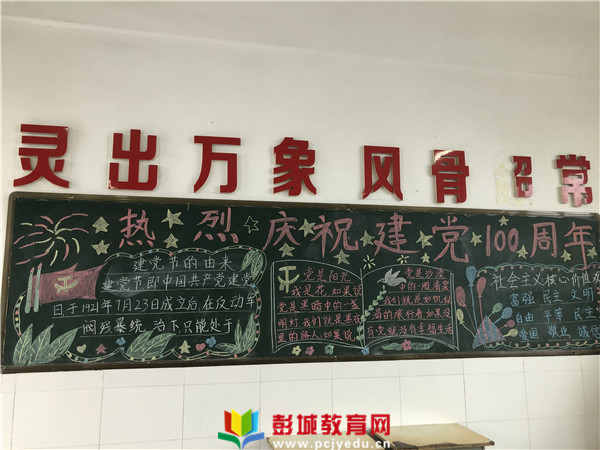 灵出万象 风骨超常
热烈庆祝建党100周年
建党节的由来
建党节即中国共产党建党
日于1921年7月23日成立后,在反动军
阀残暴统治下只能处于
党是阳光
我是花,如果说
党是黑暗中的一盏
明灯,我们就是黑夜
里的路人,如果说
党是沙漠
中的一股清泉
我们就是如饥似
渴的旅行者如果没
有党就没有幸福生活
社会主义核心价值观
富强 民主 文明
自由 平等 民主
爱国 敬业 诚信
彭城教育网
www.pcjyedu.cn